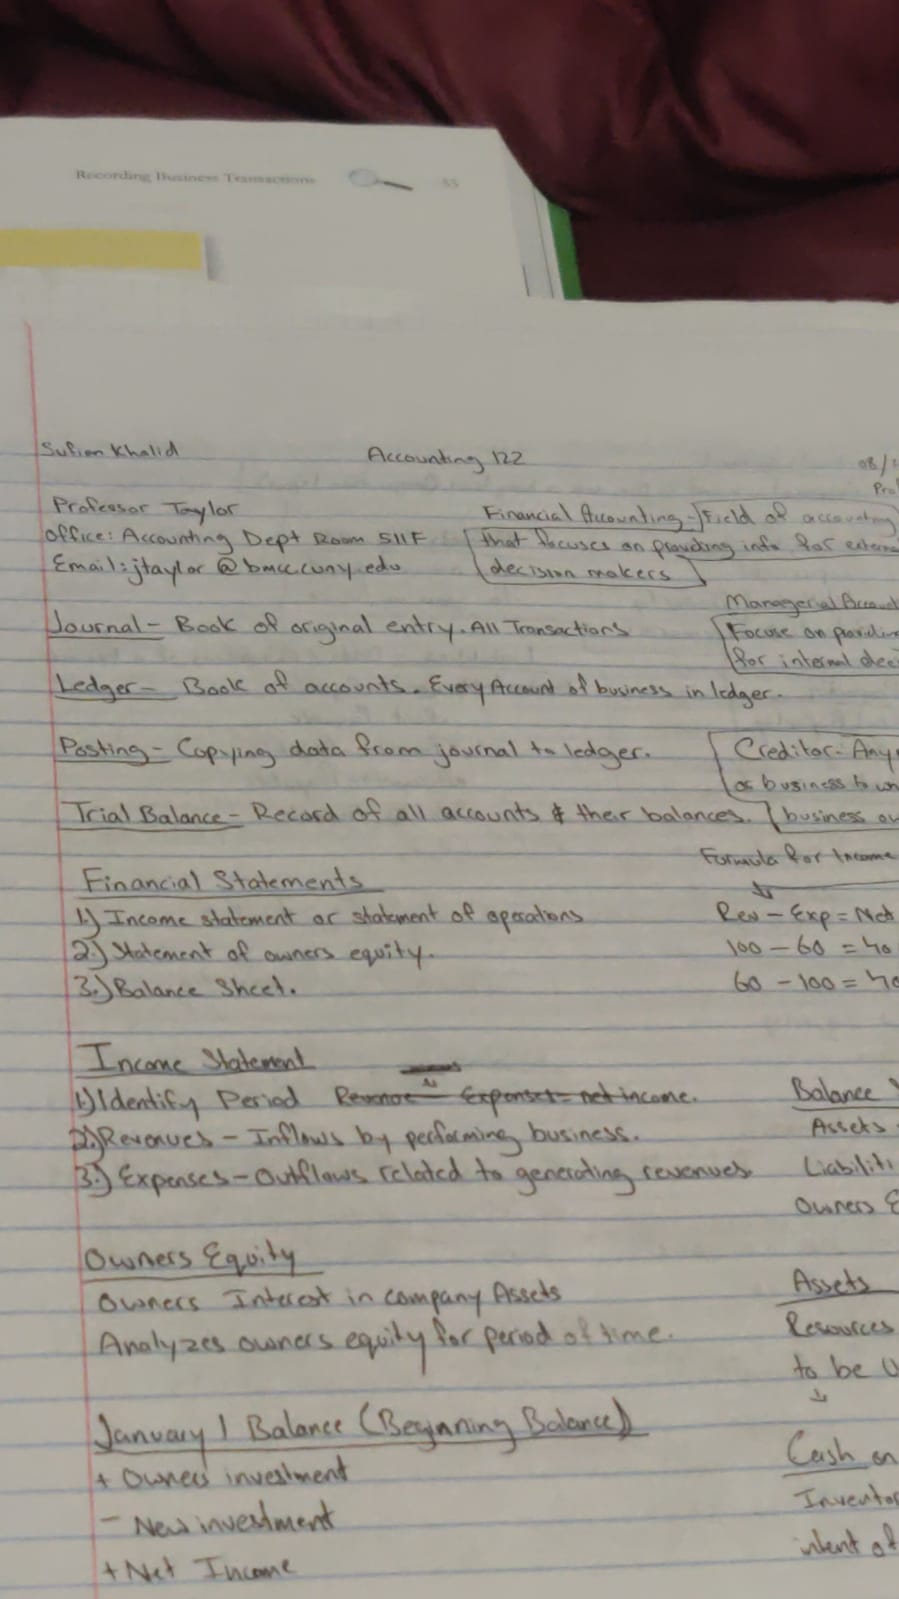 Recording Business Transactions 55
Sufian Khalid Accounting 122 08/
Professor Taylor
Office: Accounting Dept Room 511F
Email: jtaylor@bmcc.cuny.edu
Financial Accounting - Field of accounting
that focuses on providing info for
decision makers
Managerial
Focuse on
for internal
Journal - Book of original entry. All Transactions
Ledger - Book of accounts. Every Account of business in ledger.
Posting - Copying data from journal to ledger.
Creditor -
or business to
business
Trial Balance - Record of all accounts & their balances.
Formula for Income
Rev - Exp = Net
100 - 60 = 40
60 - 100 = 40
Financial Statements
1.) Income statement or statement of operations
2.) Statement of owners equity.
3.) Balance Sheet.
Income Statement
1.) Identify Period Revenue - Expenses = net income.
2.) Revenues - Inflows by performing business.
3.) Expenses - Outflows related to generating revenues
Balance
Assets
Owners
Owners Equity
Owners Interest in company Assets
Analyzes owners equity for period of time.
Assets
Resources
to be
January 1 Balance (Beginning Balance)
+ Owners investment
- New investment
+ Net Income
Cash on
intent of